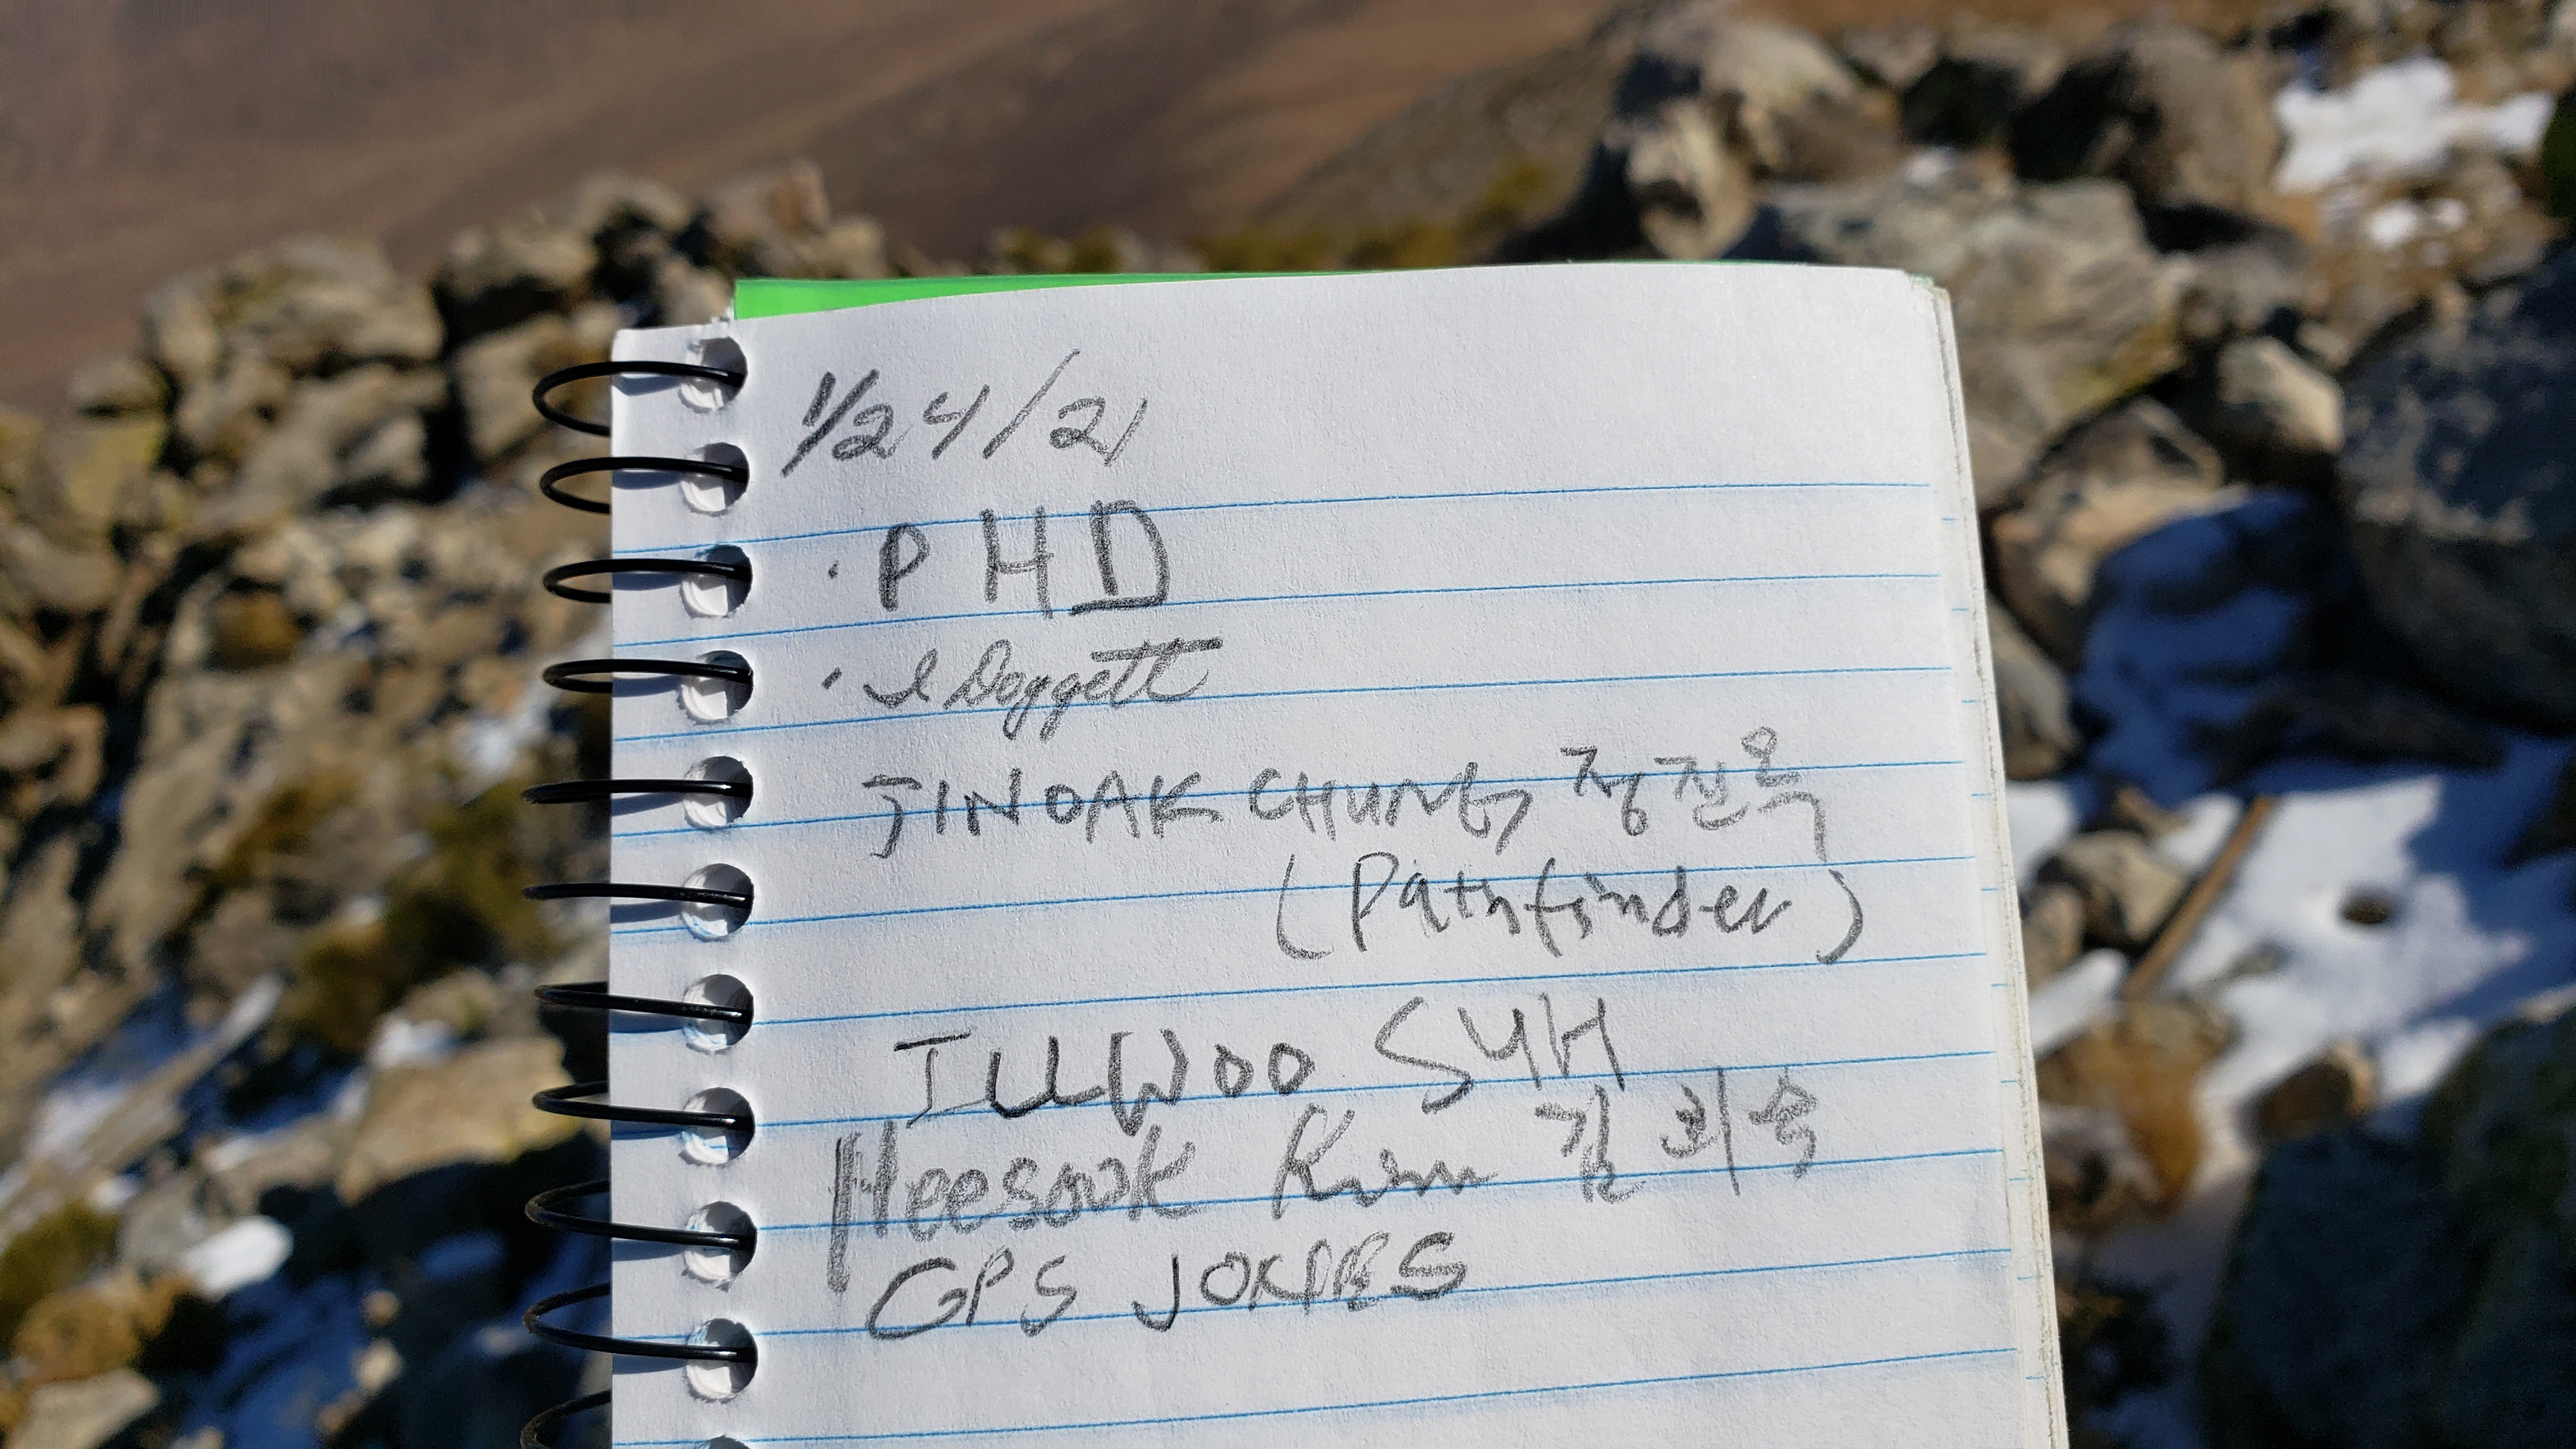 1/24/21
· PHD
· I Doggett
JINOAK CHUNG 정진옥
(Pathfinder)
ILLWOO SUH
Heesook Kim 김희숙
GPS JOKERS